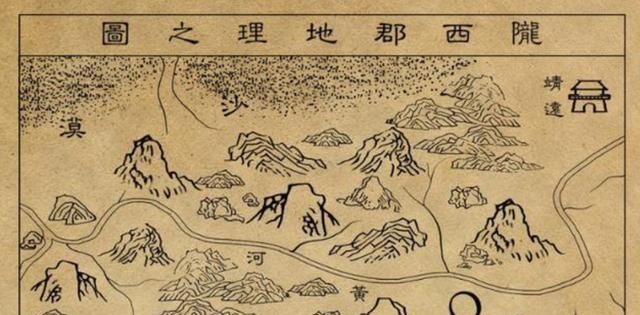 隴西郡地理之圖
靖遠
沙漠
黃河